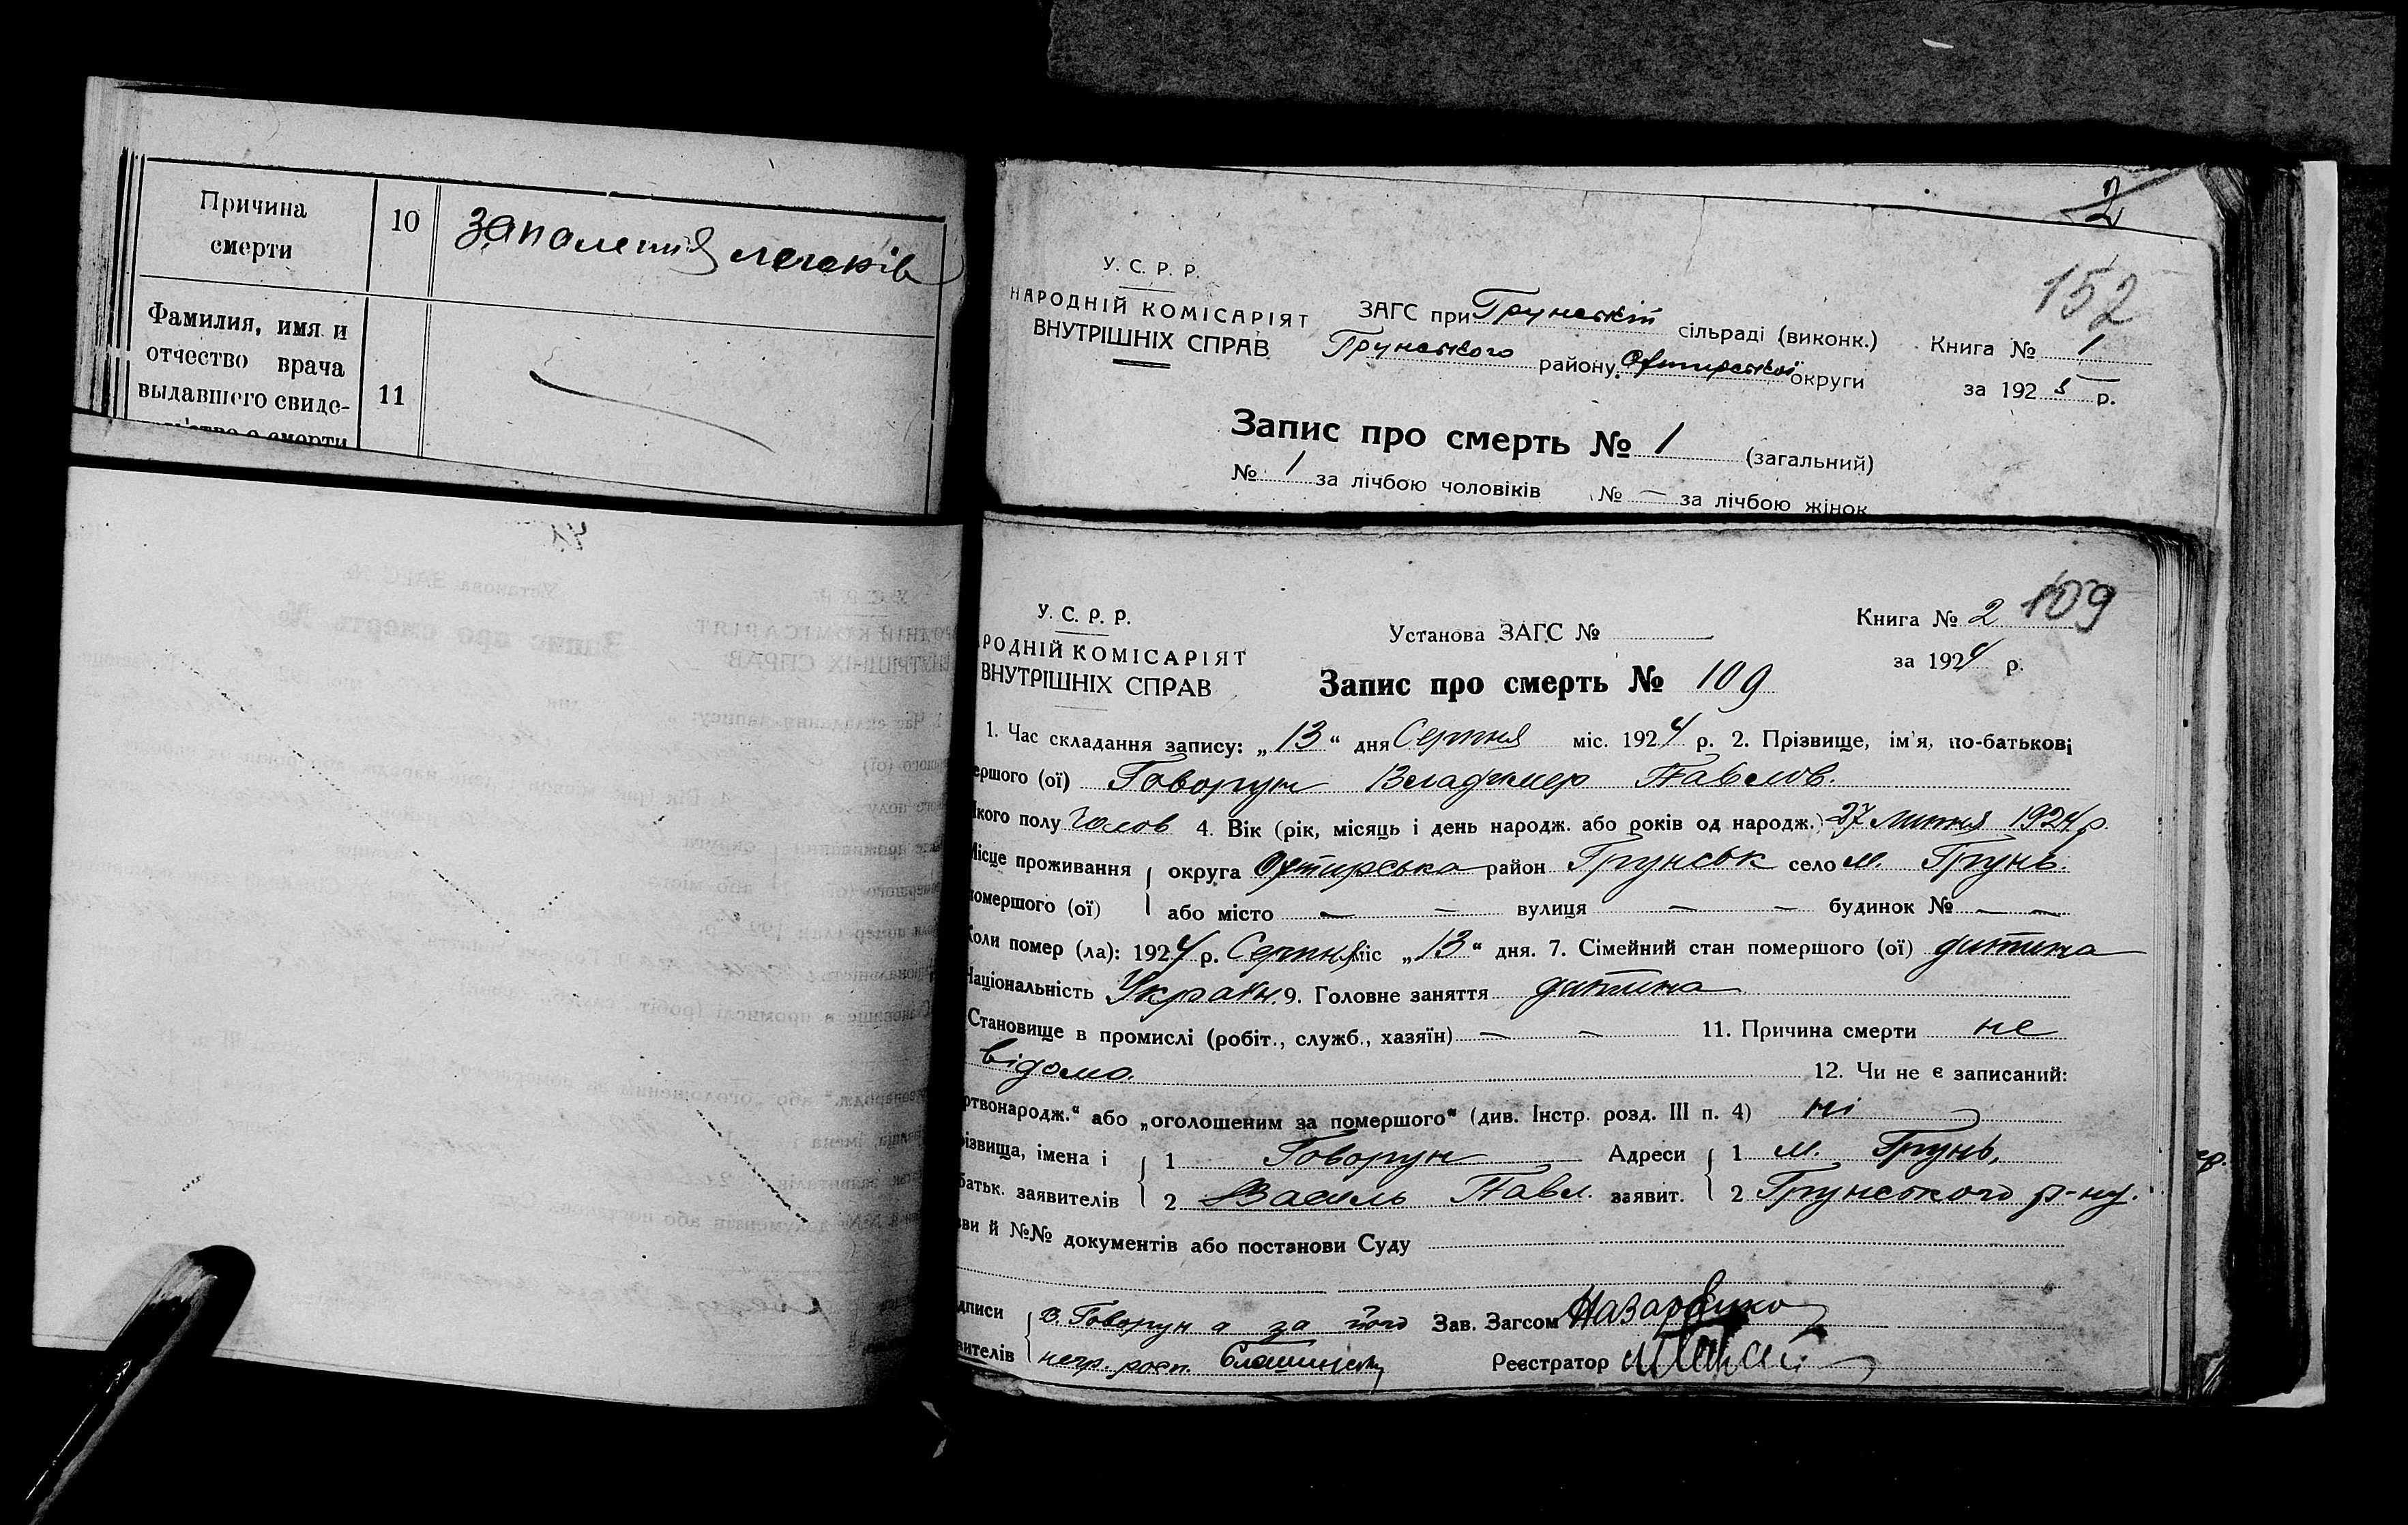 Причина
смерти
10
запалення легенів
Фамилия, имя и
отчество врача
выдавшего свиде-
11
2
152
У. С. Р. Р.
НАРОДНІЙ КОМІСАРІЯТ
ВНУТРІШНІХ СПРАВ
ЗАГС при Грунській сільраді (виконк.)
Грунського району Охтирської округи
Книга № 1
за 1925 р.
Запис про смерть № 1 (загальний)
№ 1 за лічбою чоловіків № — за лічбою жінок
109
У. С. Р. Р.
РОДНІЙ КОМІСАРІЯТ
ВНУТРІШНІХ СПРАВ
Установа ЗАГС №
Книга № 2
за 1924 р.
Запис про смерть № 109
1. Час складання запису: „13“ дня Серпня міс. 1924 р. 2. Прізвище, ім'я, по-батькові
ершого (ої) Говорун Владимер Павлов.
якого полу Чолов 4. Вік (рік, місяць і день народж. або років од народж.) 27 липня 1924 р.
Місце проживання округа Охтирська район Грунськ село м. Грунь.
помершого (ої) або місто — — вулиця — — будинок № — —
Коли помер (ла): 1924 р. Серпня міс „13“ дня. 7. Сімейний стан помершого (ої) дитина
Національність Україн. 9. Головне заняття дитина
Становище в промислі (робіт., служб., хазяїн) — — 11. Причина смерти не
відомо. 12. Чи не є записаний:
ртвонародж.“ або „оголошеним за помершого“ (див. Інстр. розд. III п. 4) ні
різвища, імена і 1 Говорун Адреси 1 м. Грунь,
батьк. заявителів 2 Василь Павл. заявит. 2 Грунського р-ну.
зви й №№ документів або постанови Суду
дписи В. Говорун а за його Зав. Загсом
вителів негр. росп. Реєстратор